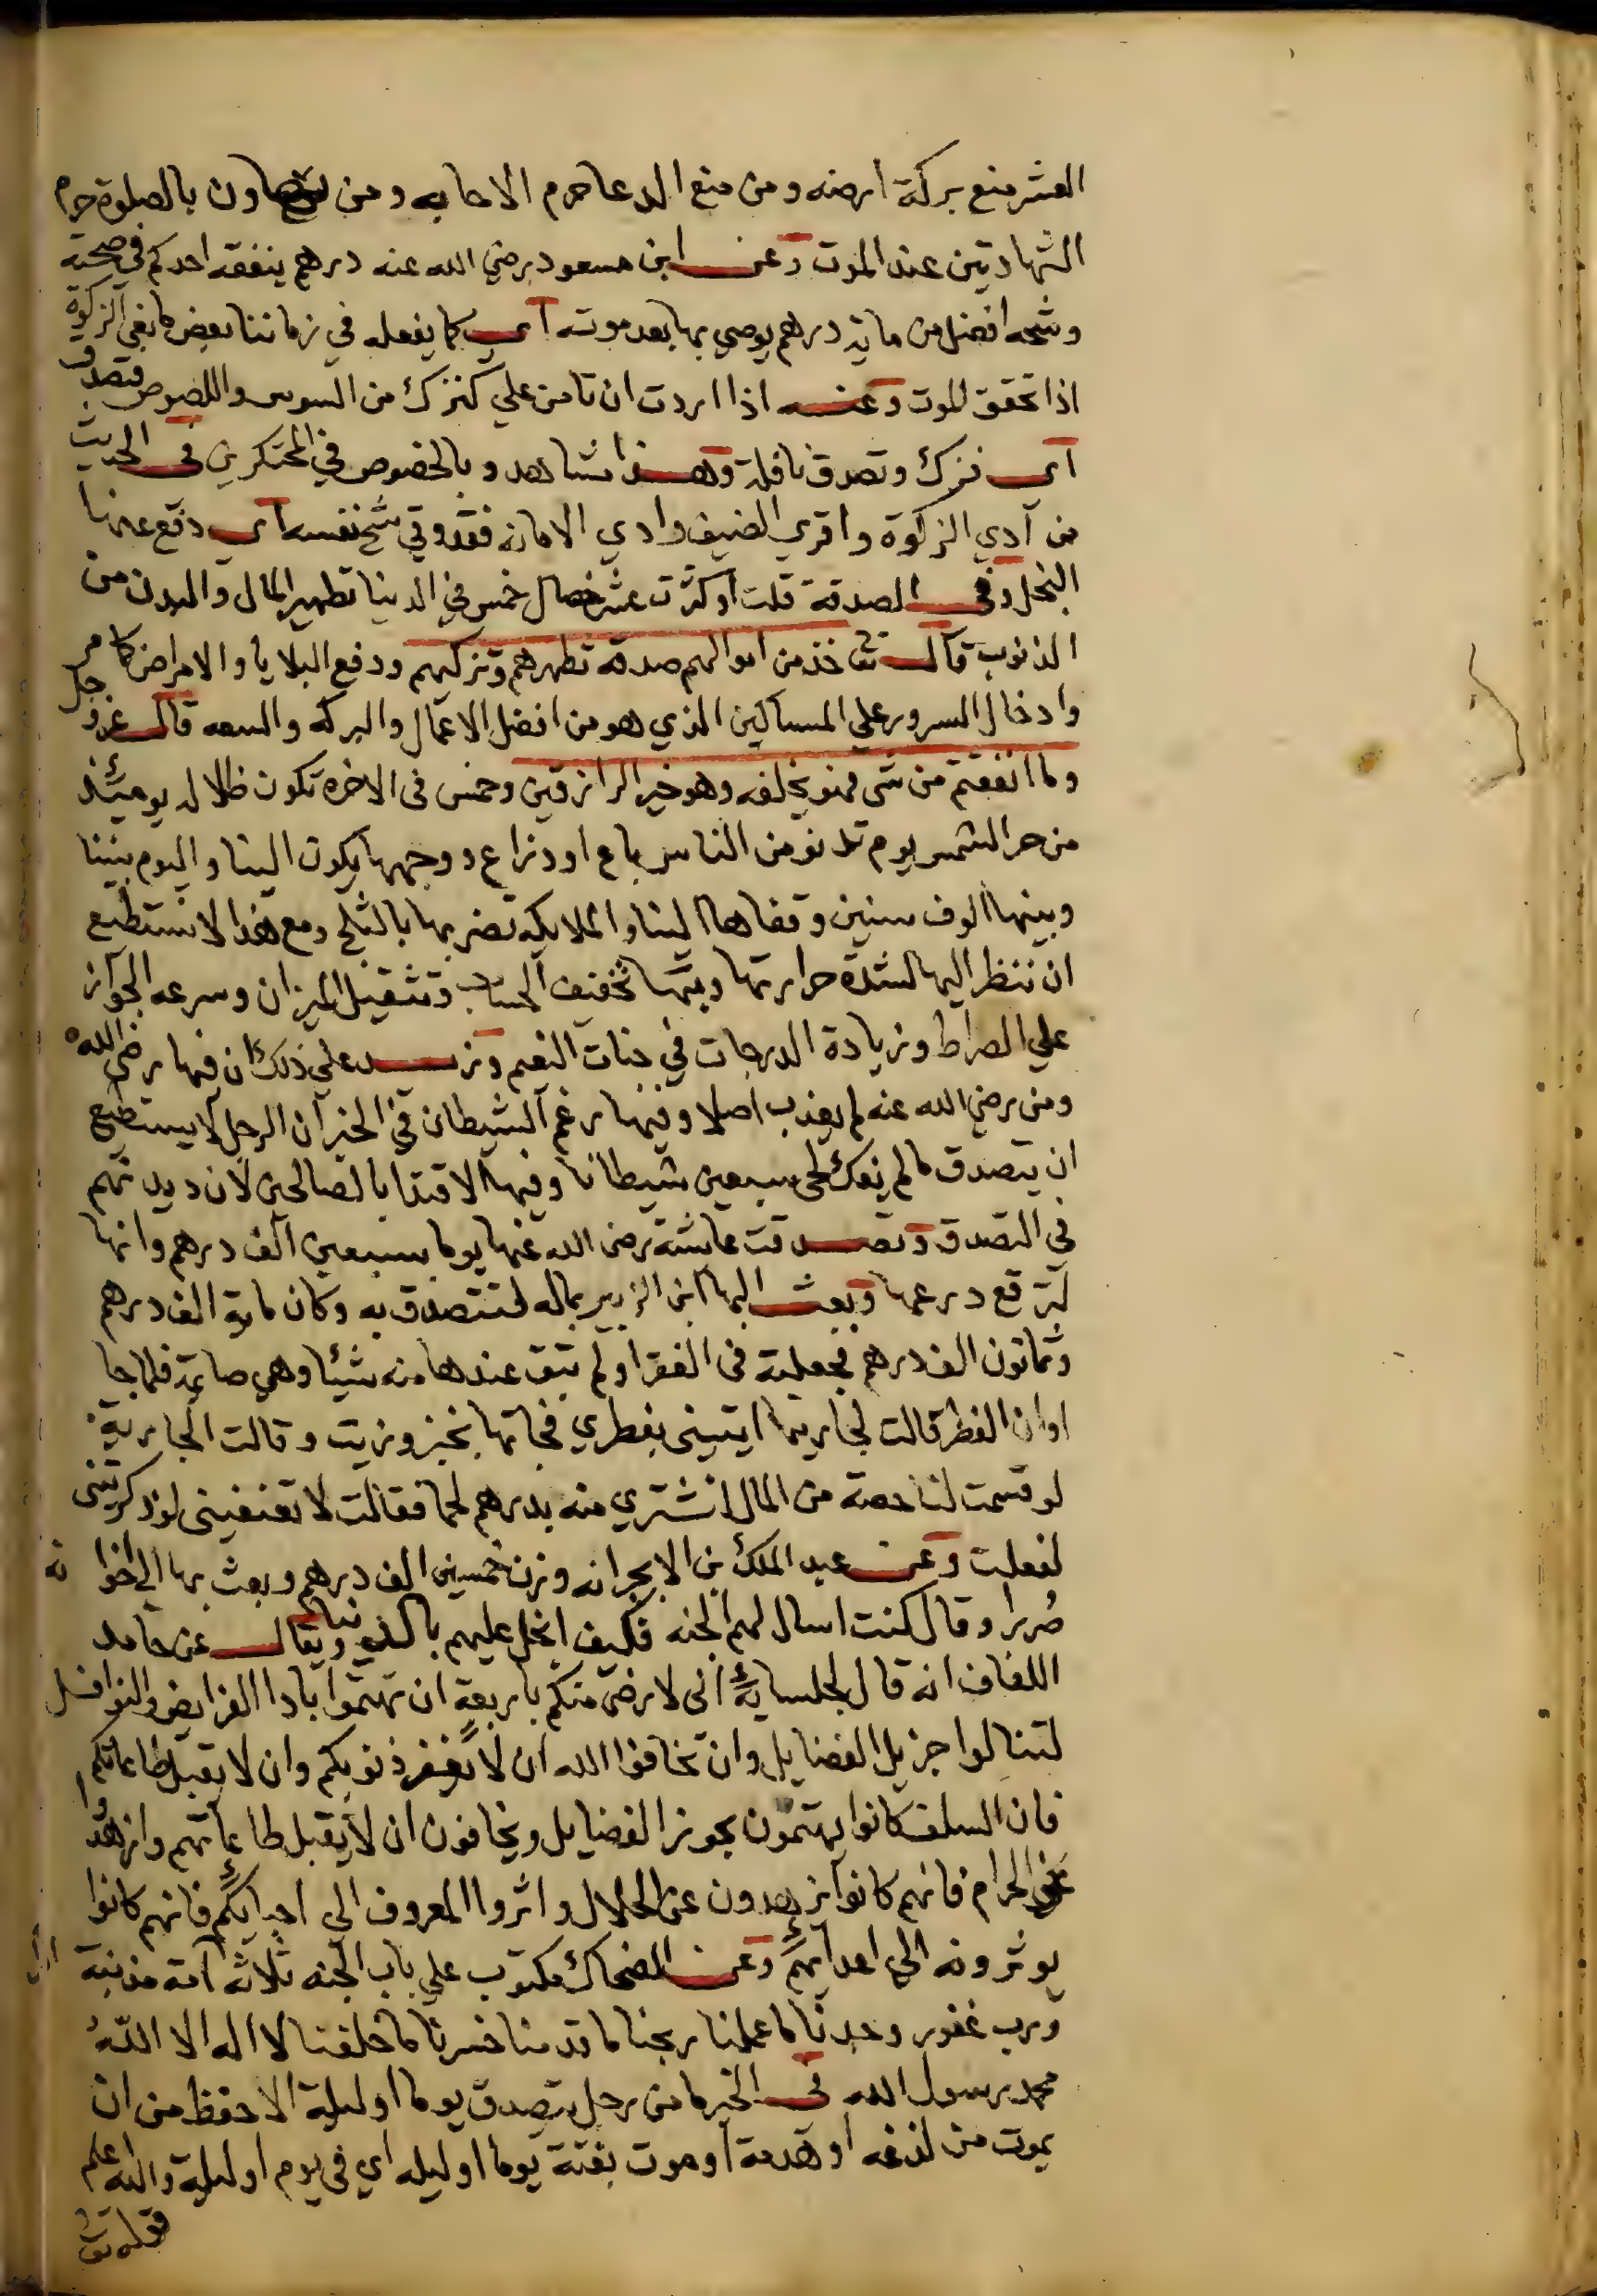 العشر منع بركة ارضه ومن منع الدعا حرم الاجابه ومن يتهاون بالصلوة حرم
الشهادتين عند الموت وعن ابن مسعود رضي الله عنه درهم ينفقه احدكم في صحته
وشحه افضل من ماية درهم يوصي بها بعد موته اي كما يفعله في زماننا بعض مانعي الزكوة
اذا تحقق الموت وعنه اذا اردت ان تامن علي كنزك من السوس واللصوص فتصدق
اي فزك وتصدق نافلة وهذا شاهد وبالخصوص في المحتكرين في الحديث
من آدي الزكوة واقري الضيف وادي الامانه فقد وقي شح نفسه اي دفع عنها
البخل وفي الصدقة قلت اوكثرت عشر خصال خمس في الدنيا تطهير المال والبدن من
الذنوب قال تعـ خذ من اموالهم صدقه تطهرهم وتزكيهم ودفع البلايا والامراض كما مر
وادخال السرور علي المساكين الذي هو من افضل الاعمال والبركه والسعه قال عز وجل
وما انفقتم من شي فهو يخلفه وهو خير الرازقين وخمس في الاخره تكون ظلا له يومئذ
من حر الشمس يوم تدنو من الناس باع او دزاع ووجهها يكون الينا واليوم بيننا
وبينها الوف سنين وقفاها الينا والملايكه تضربها بالثلج ومع هذا لا نستطيع
ان ننظر اليها لشدة حرارتها وبها تخفيف الحساب وتثقيل الميزان وسرعه الجواز
علي الصراط وزيادة الدرجات في جنات النعيم وزيد علي ذلك ان فيها رضي الله
ومن رضي الله عنه لم يعذب اصلا وفيها رغم الشيطان ففي الخبر ان الرجل لا يستطيع
ان يتصدق ما لم يفك لحي سبعين شيطانا وفيها الاقتدا بالصالحين لان ديدنهم
في التصدق وتصدقت عايشة رضي الله عنها يوما سبعين الف درهم وانها
لترقع درعها وبعث اليها ابن الزبير بماله لتتصدق به وكان ماية الف درهم
وثمانون الف درهم فجعلته في الفقرا ولم تبق عندها منه شيئا وهي صايمة فلما جا
اوان الفطر قالت لجاريتها ايتيني بفطري فجاتها بخبز وزيت وقالت الجارية
لو قسمت لنا حصة من المال نشتري منه بدرهم لحما فقالت لا تعنفيني لو ذكرتيني
لفعلت وعن عبد الملك بن الابجر انه وزن خمسين الف درهم وبعث بها الي اخوانه
صررا وقال كنت اسال لهم الجنه فكيف ابخل عليهم بالدنيا ويقال عن حامد
اللفاف انه قال لجلسايه اني لا رضي منكم باربعة ان تهتموا بادا الفرايض والنوافل
لتنالوا جزيل الفضايل وان تخافوا الله ان لا يغفر ذنوبكم وان لا يقبل طاعاتكم
فان السلف كانوا يهتمون بحوز الفضايل ويخافون ان لا يقبل طاعاتهم وازهدوا
عن الحرام فانهم كانوا يزهدون عن الحلال واثروا المعروف الي احبايكم فانهم كانوا
يوثرونه الي اعدايهم وعن الضحاك مكتوب علي باب الجنه ثلاثه امة مذنبة
ورب غفور وجدنا ما عملنا ربحنا ما قدمنا خسرنا ما خلفنا لا اله الا الله
محمد رسول الله في الخبر ما من رجل يتصدق يوما او ليلة الا حفظ من ان
يموت من لدغه او هدمة او موت بغتة يوما او ليله اي في يوم او ليلة والله اعلم